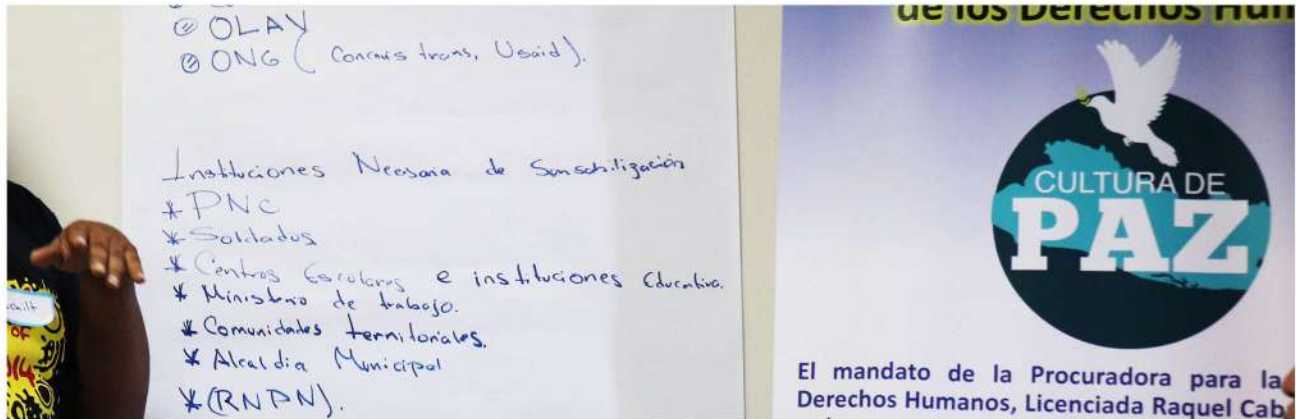 OLAV
ONG ( Concavis trans, Usaid).
Instituciones Necesaria de Sensibilización
* PNC
* Soldados
* Centros Escolares e instituciones Educativa.
* Ministerio de trabajo.
* Comunidades territoriales.
* Alcaldia Municipal
* (RNPN).
de los Derechos Hum
CULTURA DE
PAZ
El mandato de la Procuradora para la
Derechos Humanos, Licenciada Raquel Cab
OF